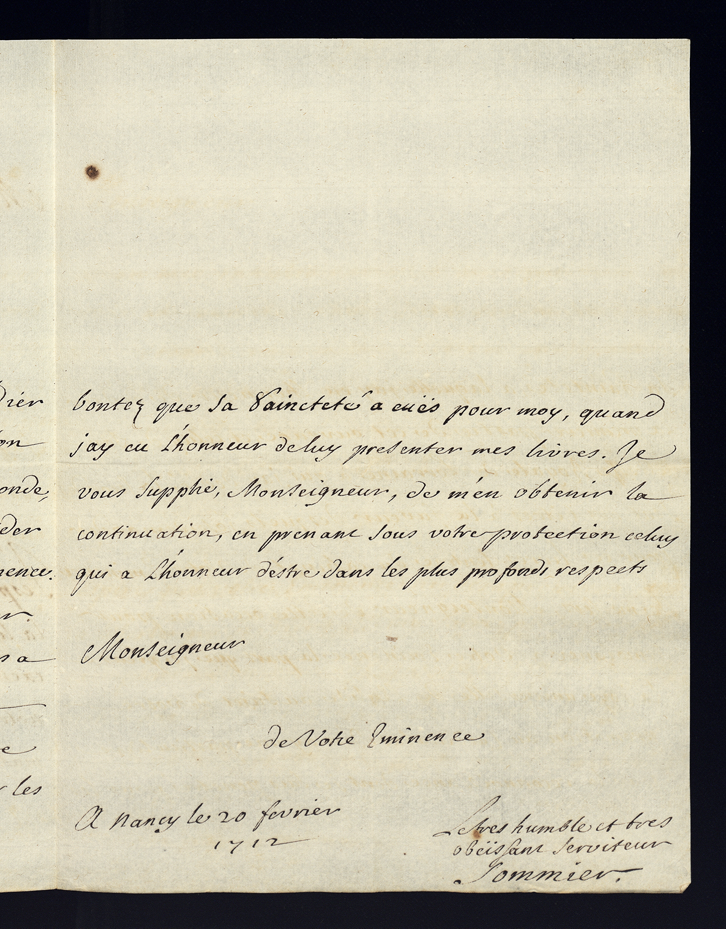 bontez que sa Saincteté a eües pour moy, quand
jay eu L'honneur deluy presenter mes livres. Je
vous supplie, Monseigneur, de m'en obtenir la
continuation, en prenant sous votre protection celuy
qui a L'honneur d'éstre dans les plus profonds respects
Monseigneur
de Votre Eminence
A Nancy le 20 fevrier
1712
Le tres humble et tres
obëissant serviteur
Sommier.